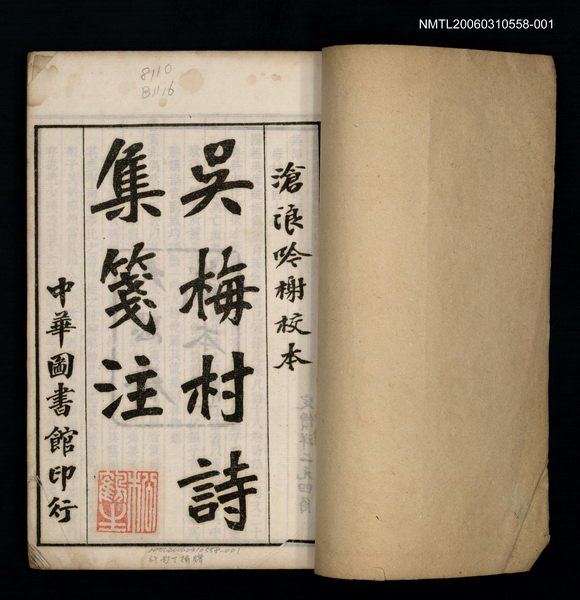 NMTL20060310558-001
8110
B1116
滄浪吟榭校本
吳梅村詩
集箋注
中華圖書館印行
NMTL20060310558-001